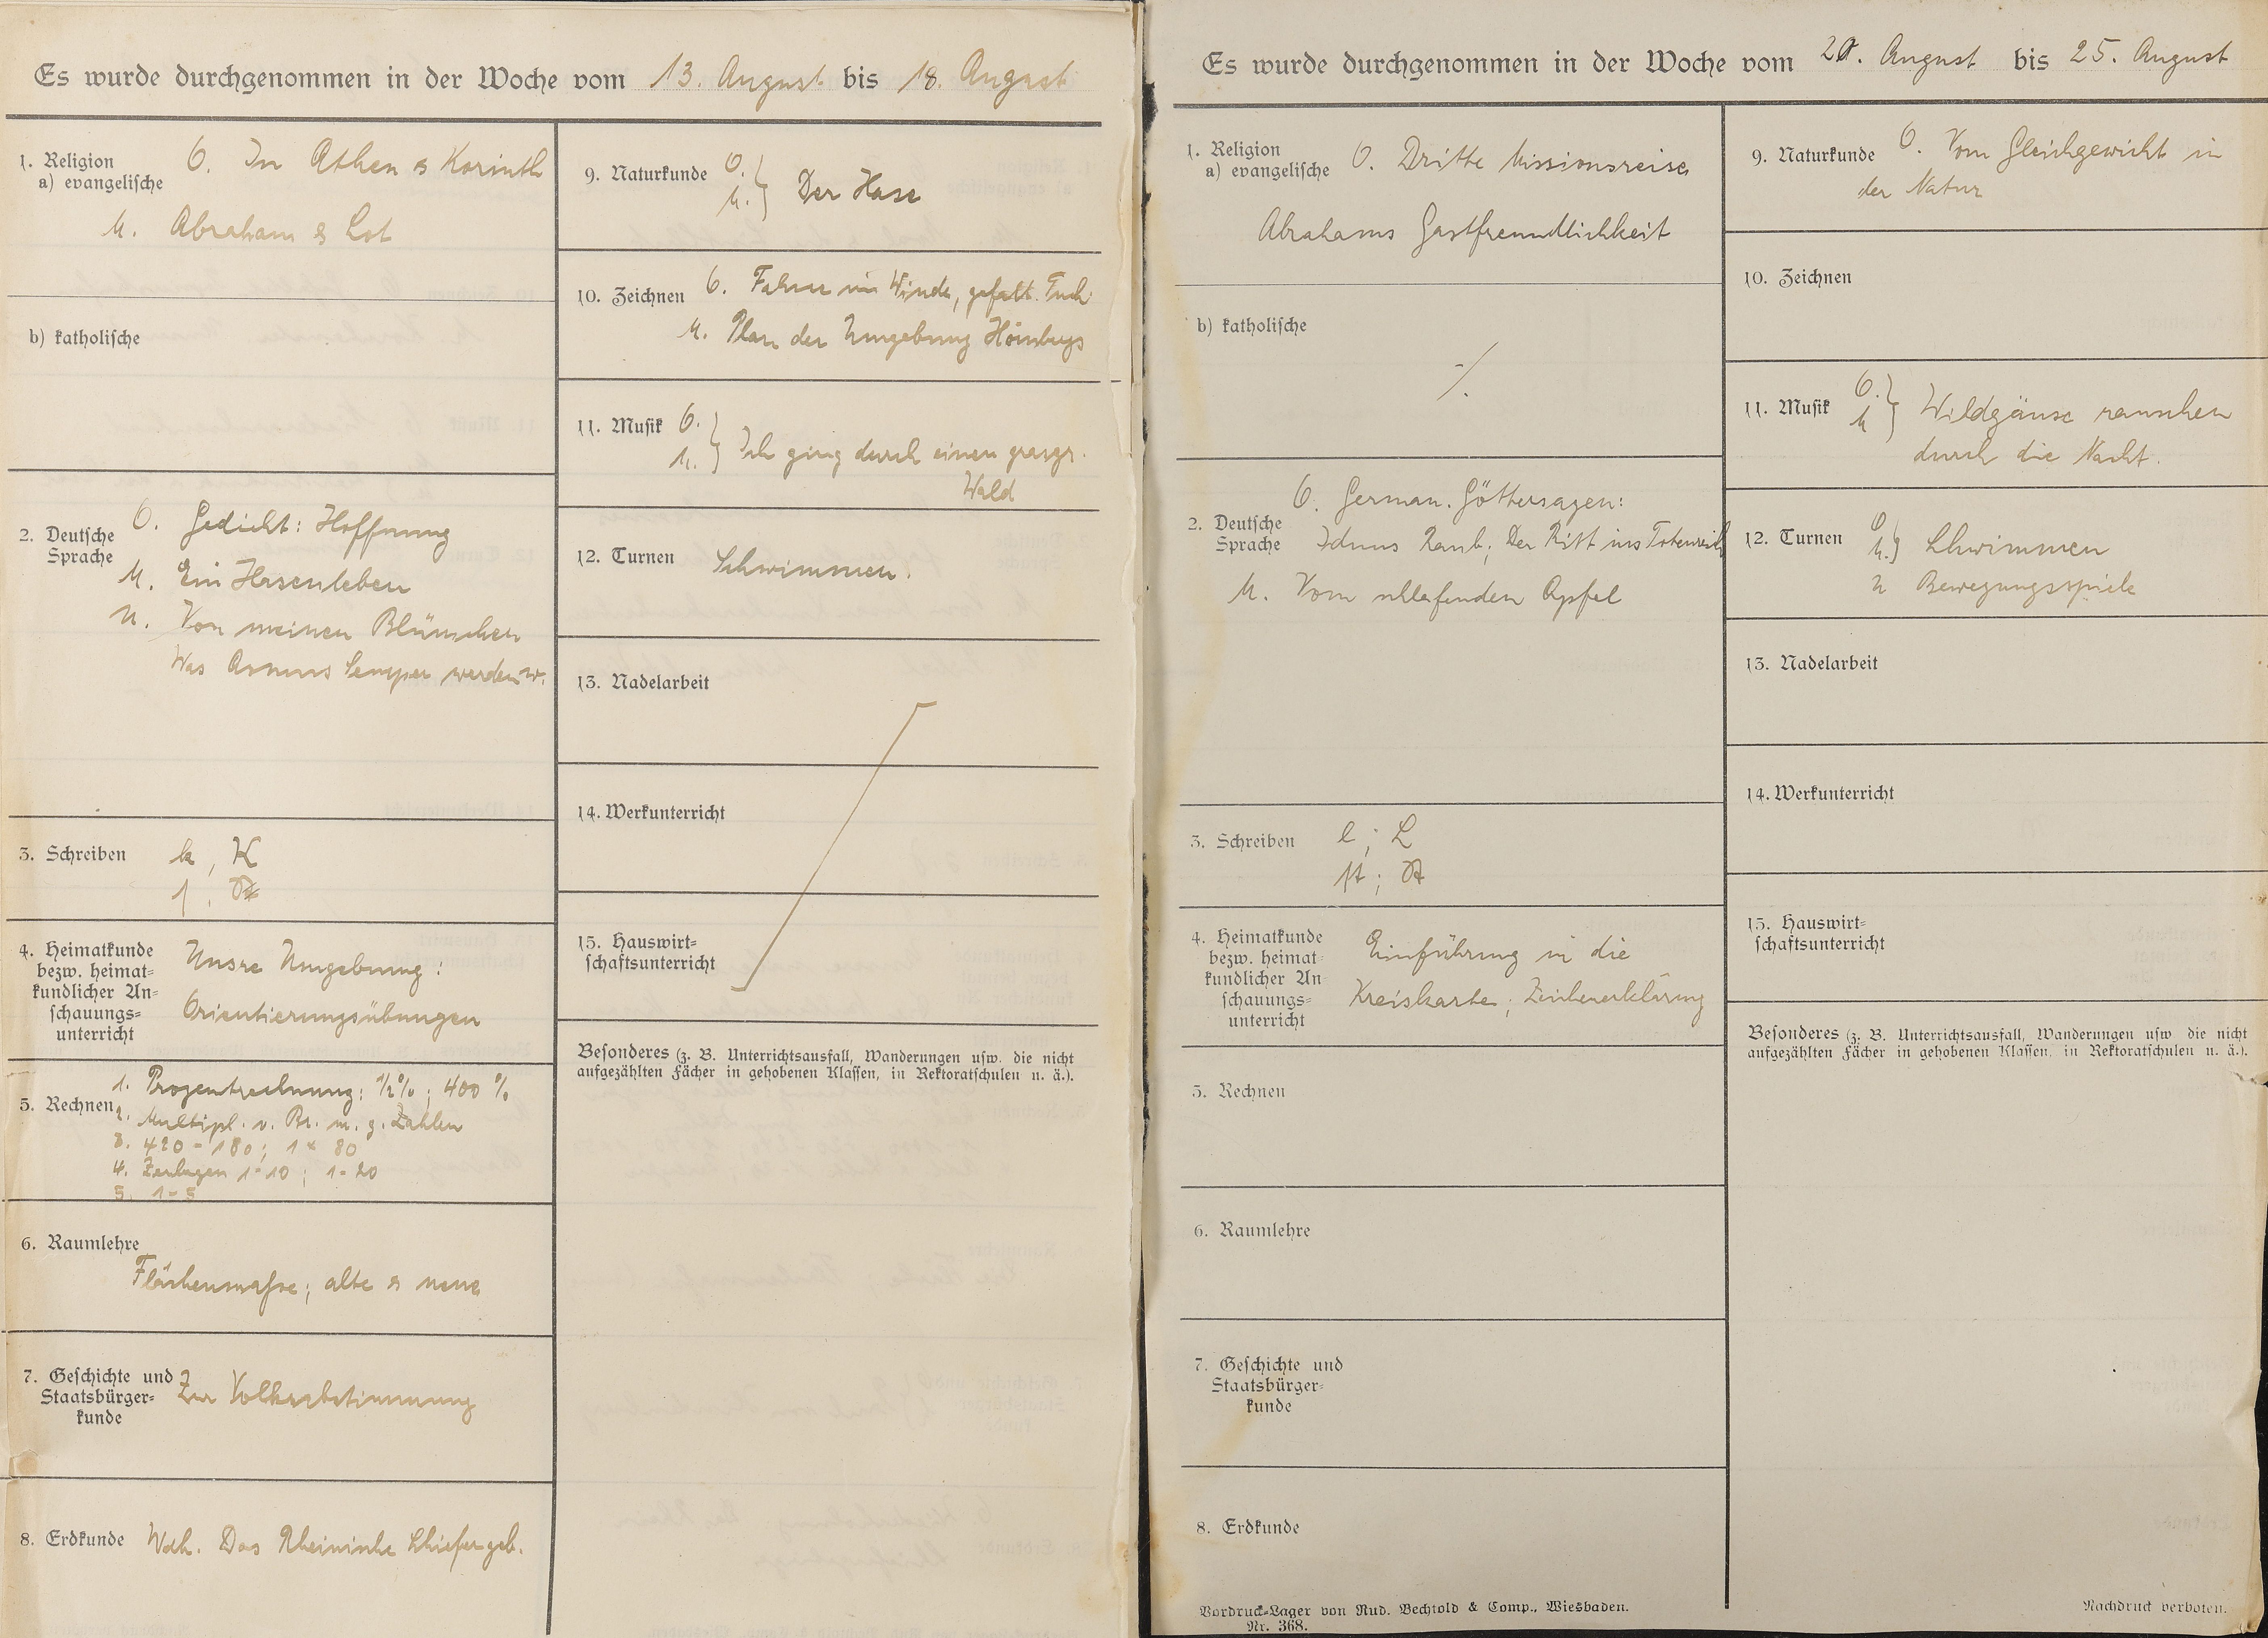 Es wurde durchgenommen in der Woche vom 13. August bis 18. August
1. Religion
a) evangelische
O. In Athen & Korinth
M. Abraham & Lot
b) katholische
2. Deutsche
Sprache
O. Gedicht: Hoffnung
M. Ein Hasenleben
U. Von meinen Blümchen
Was Asmus Semper werden w.
3. Schreiben
k, K
4. Heimatkunde
bezw. heimat=
kundlicher An=
schauungs=
unterricht
Unsre Umgebung:
Orientierungsübungen
5. Rechnen
1. Prozentrechnung: 1/2%; 400%
2. Multipl. v. Br. m. g. Zahlen
3. 420 - 180; 1 x 80
4. Zerlegen 1-10; 1-20
5. 1-5
6. Raumlehre
Flächenmaße; alte & neue
7. Geschichte und
Staatsbürger=
kunde
Zur Volksabstimmung
8. Erdkunde Wdh. Das Rheinische Schiefergeb.
9. Naturkunde
O.
M.
Der Hase
10. Zeichnen
O. Fahne im Winde, gefalt. Tuch
M. Plan der Umgebung
11. Musik
O.
M.
Ich ging durch einen grasgr.
Wald
12. Turnen Schwimmen.
13. Nadelarbeit
14. Werkunterricht
15. Hauswirt=
schaftsunterricht
Besonderes (z. B. Unterrichtsausfall, Wanderungen usw. die nicht
aufgezählten Fächer in gehobenen Klassen, in Rektoratschulen u. ä.).
Es wurde durchgenommen in der Woche vom 20. August bis 25. August
1. Religion
a) evangelische
O. Dritte Missionsreise
Abrahams Gastfreundlichkeit
b) katholische
2. Deutsche
Sprache
O. German. Göttersagen:
Iduns Raub; Der Ritt ins Totenreich
M. Vom schlafenden Apfel
3. Schreiben
l; L
4. Heimatkunde
bezw. heimat
kundlicher An
schauungs=
unterricht
Einführung in die
Kreiskarte; Zeichenerklärung
5. Rechnen
6. Raumlehre
7. Geschichte und
Staatsbürger=
kunde
8. Erdkunde
Vordruck=Lager von Rud. Bechtold & Comp., Wiesbaden.
Nr. 368.
9. Naturkunde
O. Vom Gleichgewicht in
der Natur
10. Zeichnen
11. Musik
O.
M
Wildgänse rauschen
durch die Nacht.
12. Turnen
O
M.
Schwimmen
u Bewegungsspiele
13. Nadelarbeit
14. Werkunterricht
15. Hauswirt=
schaftsunterricht
Besonderes (z. B. Unterrichtsausfall, Wanderungen usw. die nicht
aufgezählten Fächer in gehobenen Klassen, in Rektoratschulen u. ä.).
Nachdruck verboten.